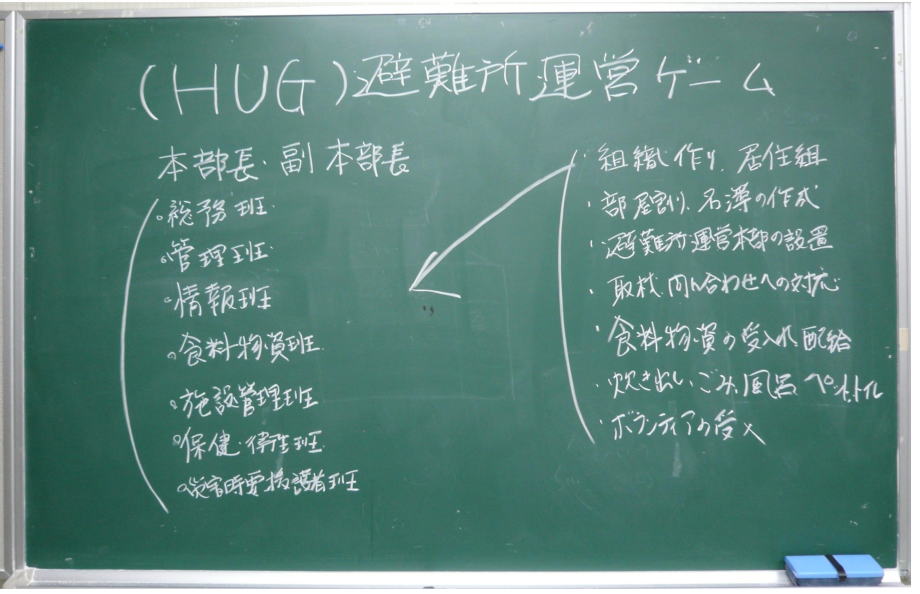 (HUG)避難所運営ゲーム
本部長・副本部長
。総務班
。管理班
。情報班
。食料物資班
。施設管理班
。保健・衛生班
。災害時要援護者班
・組織作り、居住組
・部屋割り、名簿の作成
・避難所運営本部の設置
・取材、問い合わせへの対応
・食料物資の受入れ配給
・炊き出し、ごみ、風呂
・ボランティアの受入